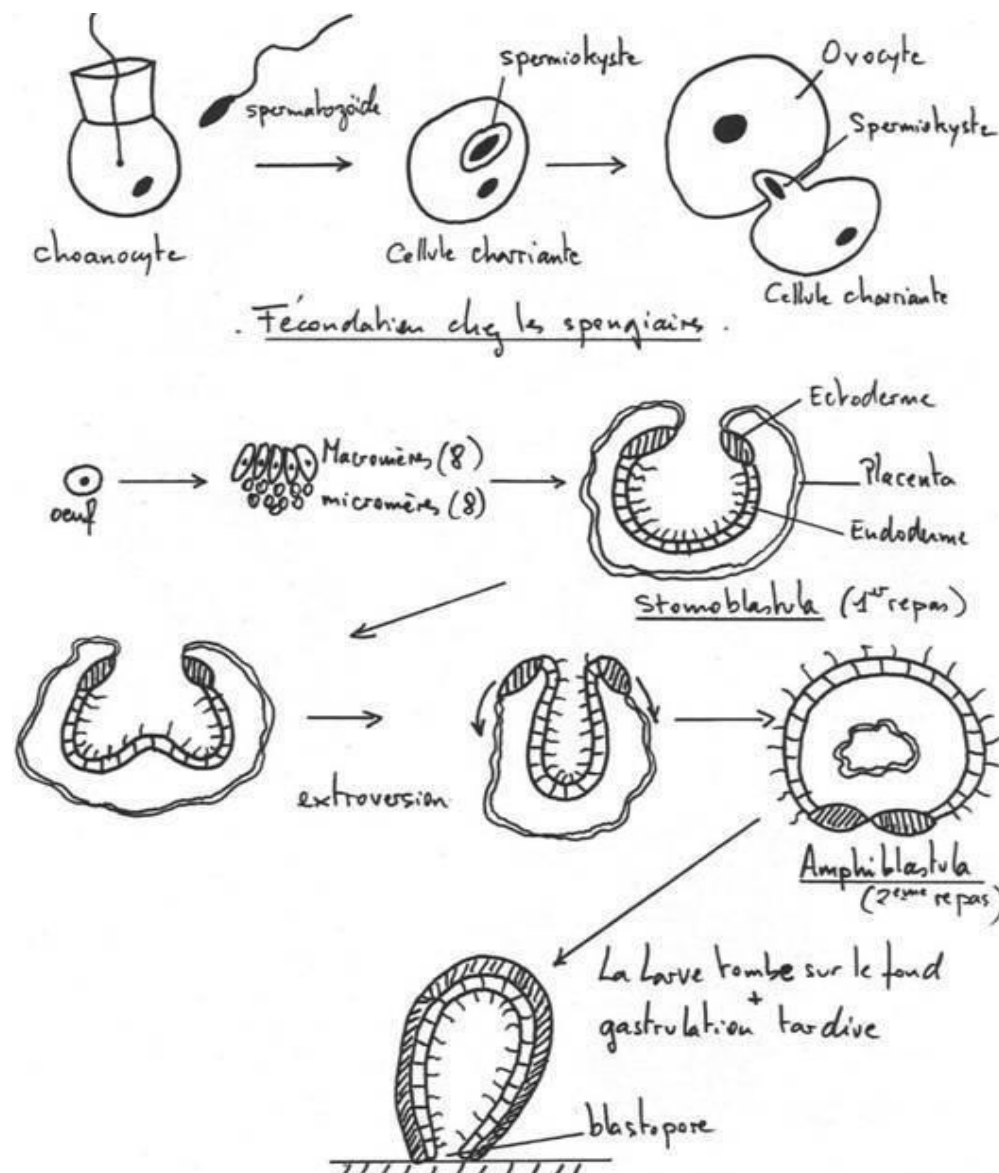 spermatozoïde
spermiokyste
Ovocyte
Spermiokyste
choanocyte
Cellule charriante
Cellule charriante
. Fécondation chez les spongiaires .
oeuf
Macromères (8)
micromères (8)
Ectoderme
Placenta
Endoderme
Stomoblastula (1er repas)
extroversion
Amphiblastula
(2eme repas)
La Larve tombe sur le fond
+
gastrulation tardive
blastopore